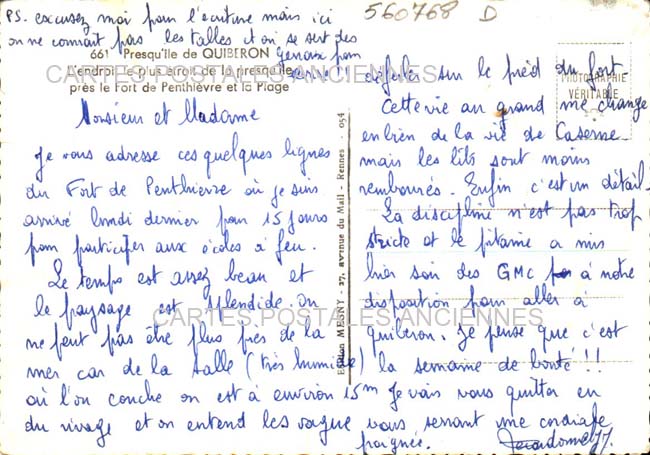 PS. excusez moi pour l'écriture mais ici
on ne connait pas les tables et on se sert des
genoux pour
écrire
560768 D
661 Presqu'île de QUIBERON
L'endroit le plus étroit de la presqu'île
près le Fort de Penthièvre et la Plage
CARTES POSTALES ANCIENNES
PHOTOGRAPHIE
VÉRITABLE
Monsieur et Madame
Je vous adresse ces quelques lignes
du Fort de Penthievre où je suis
arrivé lundi dernier pour 15 jours
pour participer aux écoles à feu.
Le temps est assez beau et
le paysage est splendide. On
ne peut pas être plus près de la
mer car de la salle (très humide)
où l'on couche on est à environ 15m
du rivage et on entend les vagues
Edition MESNY - 27, avenue du Mail - Rennes - 054
déferler sur le pied du fort
Cette vie au grand me change
en bien de la vie de Caserne
mais les lits sont moins
rembourrés. Enfin c'est un détail
La discipline n'est pas trop
stricte et le pitaine a mis
hier soir des GMC à notre
disposition pour aller à
quiberon. Je pense que c'est
la semaine de bonté !!!
Je vais vous quitter en
vous serrant une cordiale
poignée.
CARTES POSTALES ANCIENNES